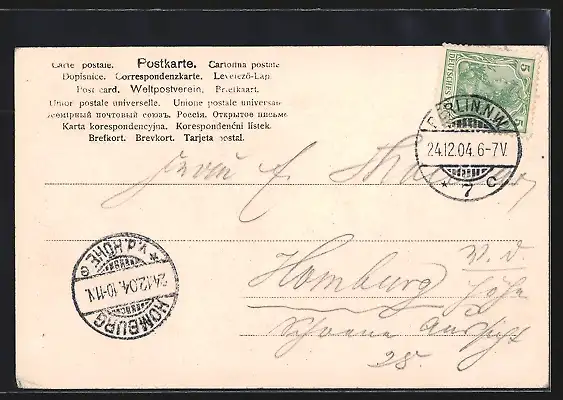 Carte postale. Postkarte. Cartolina postale
Dopisnice. Correspondenzkarte. Levelező-Lap.
Post card. Weltpostverein. Briefkaart.
Union postale universelle. Unione postale universale
Всемірный почтовый союзъ. Россія. Открытое письмо
Karta korespondencyjna. Korespondenční lístek.
Brefkort. Brevkort. Tarjeta postal.
5 DEUTSCHES 5
BERLIN N.W.
24.12.04.6-7V.
* 7 c
Frau E.
Homburg v. d.
Höhe
Schoene Aussicht
25.
HOMBURG
24.12.04.10-11V.
* v.d.HÖHE